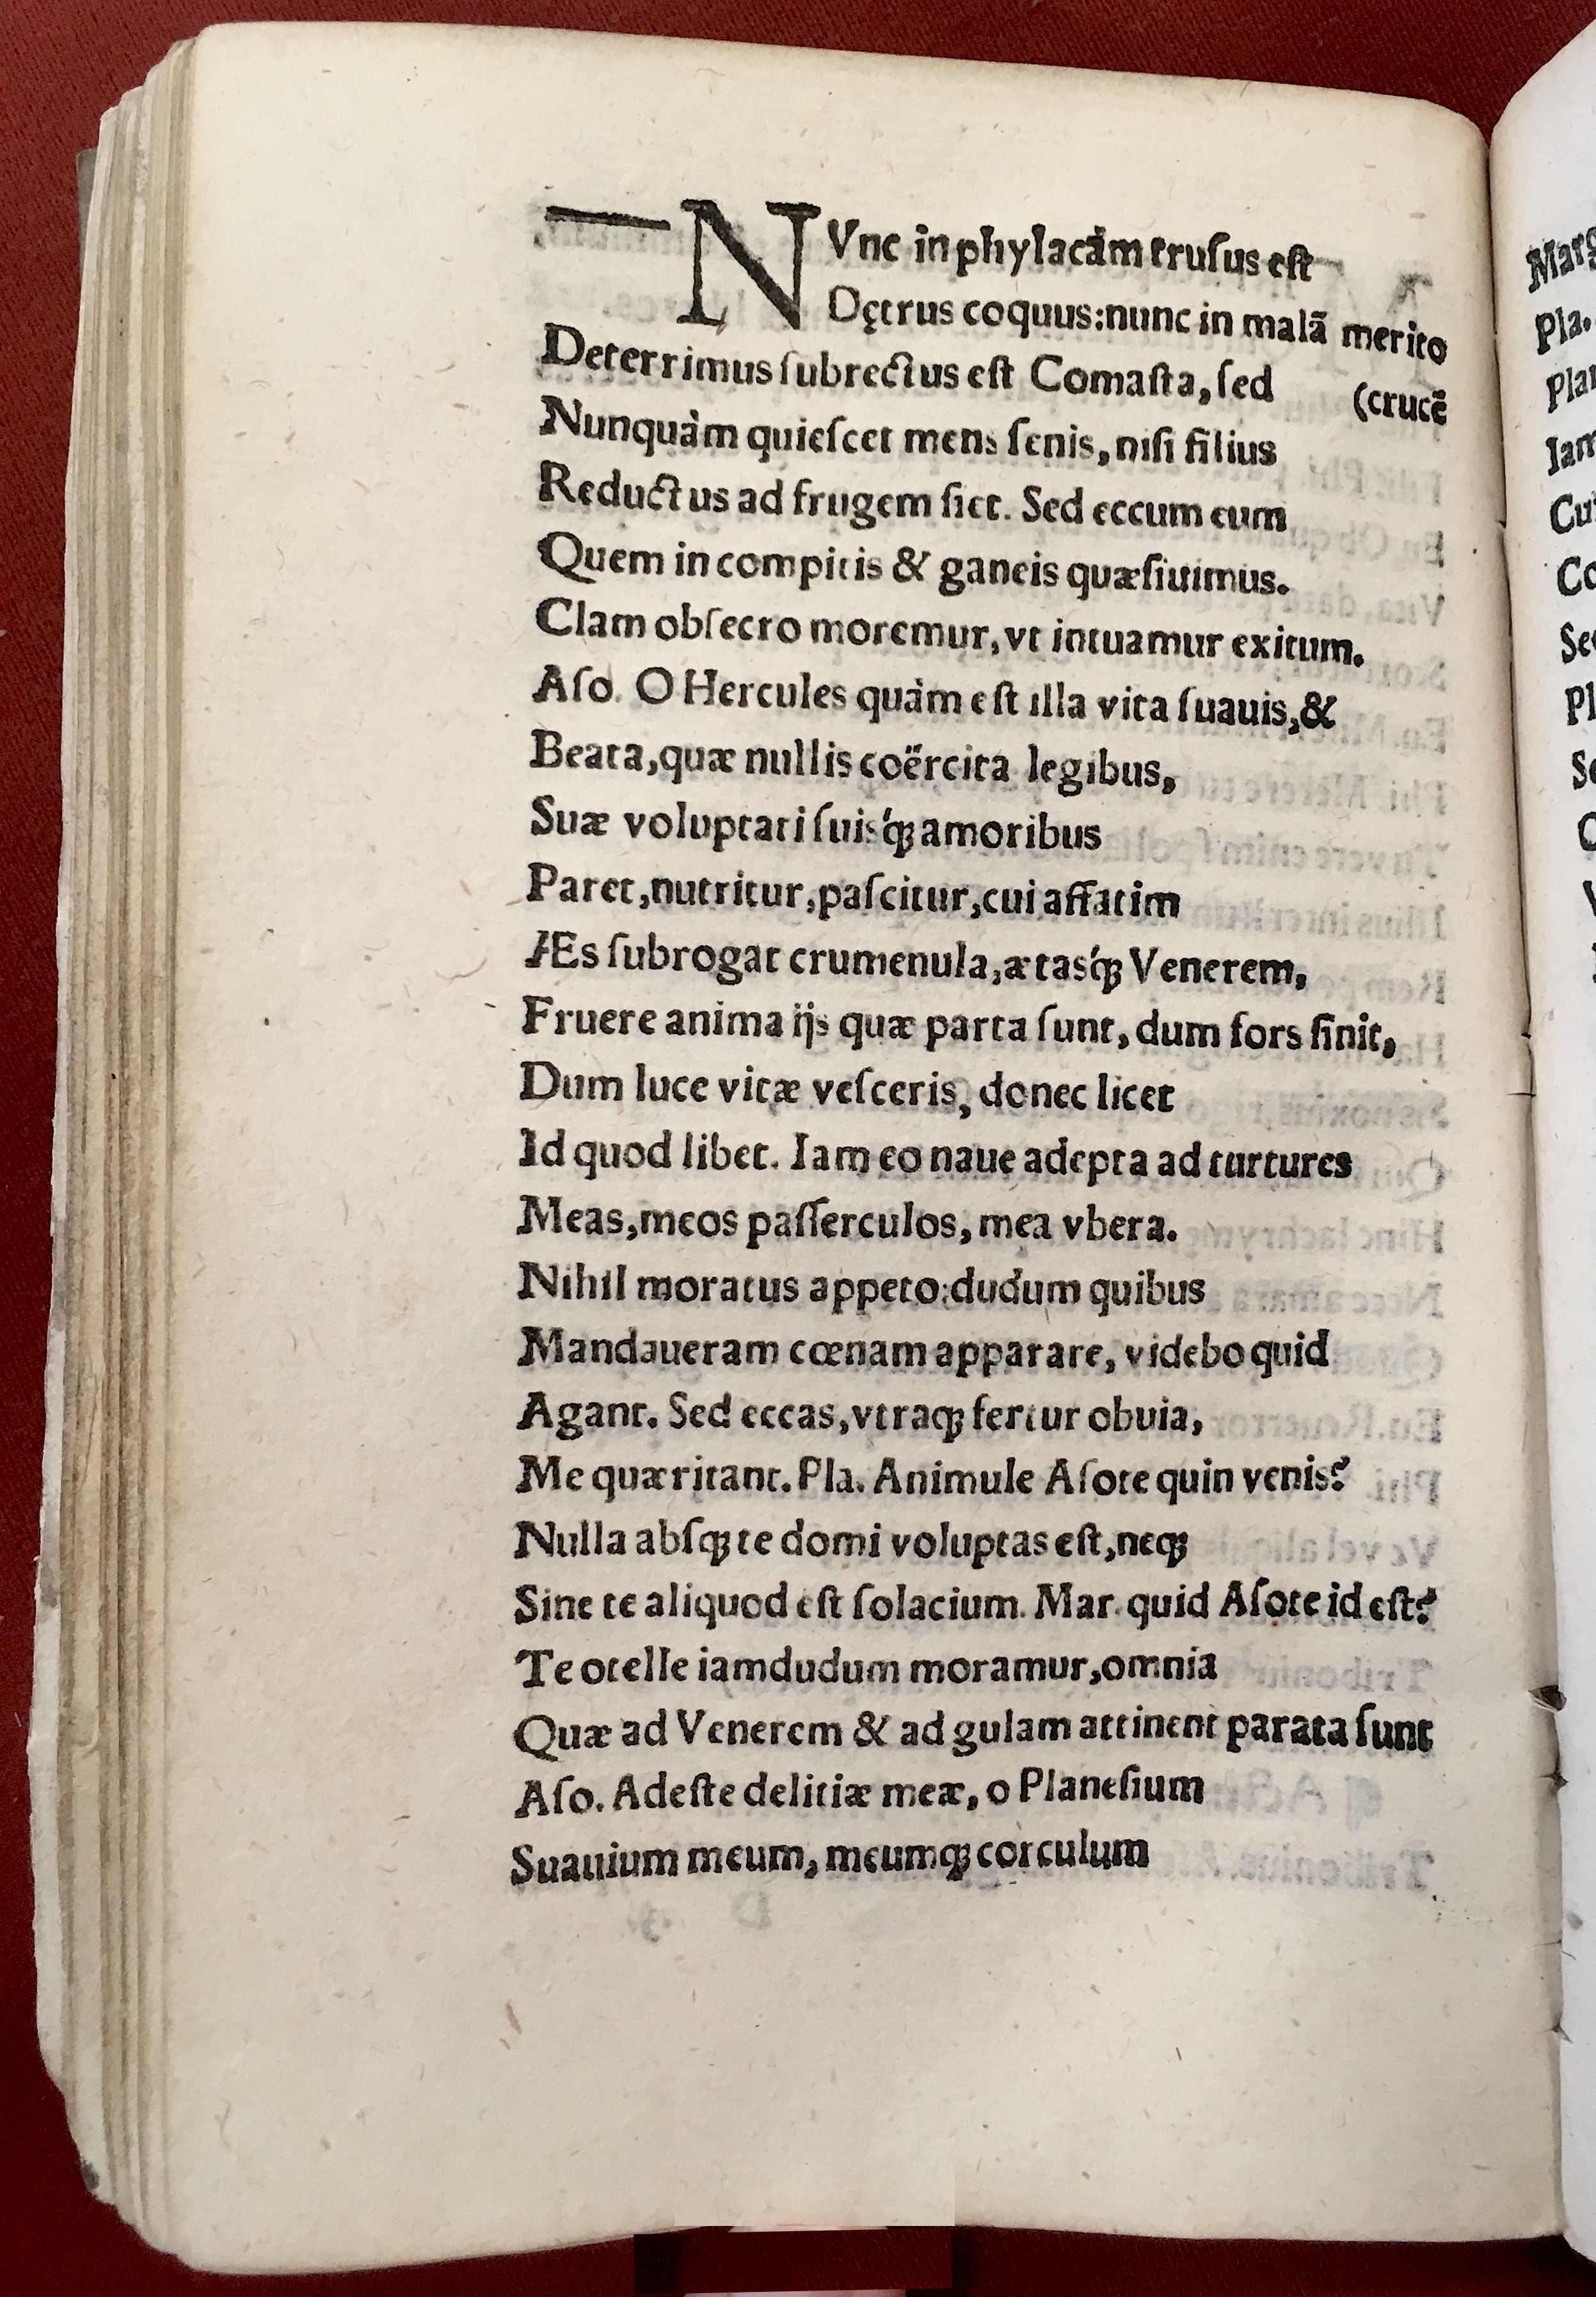 NVnc in phylacam trusus est
Dętrus coquus:nunc in malã merito
(crucē
Deterrimus subrectus est Comasta, sed
Nunquàm quiescet mens senis, nisi filius
Reductus ad frugem siet. Sed eccum eum
Quem in compitis & ganeis quæsiuimus.
Clam obsecro moremur, vt intuamur exitum.
Aso. O Hercules quàm est illa vita suauis,&
Beata,quæ nullis coërcita legibus,
Suæ voluptati suisq́ꝫ amoribus
Paret,nutritur,pascitur,cui affatim
Æs subrogat crumenula,ætasq́ꝫ Venerem,
Fruere anima ijs quæ parta sunt, dum fors sinit,
Dum luce vitæ vesceris, donec licet
Id quod libet. Iam eo naue adepta ad turtures
Meas,meos passerculos, mea vbera.
Nihil moratus appeto:dudum quibus
Mandaueram cœnam apparare, videbo quid
Agant. Sed eccas,vtraqꝫ fertur obuia,
Me quæritant. Pla. Animule Asote quin venis?
Nulla absqꝫ te domi voluptas est,neqꝫ
Sine te aliquod est solacium. Mar. quid Asote id est?
Te ocelle iamdudum moramur,omnia
Quæ ad Venerem & ad gulam attinent parata sunt
Aso. Adeste delitiæ meæ, o Planesium
Suauium meum, meumqꝫ corculum
Marg
Pla.
Plan
Iam
Cu
Co
Se
Pl